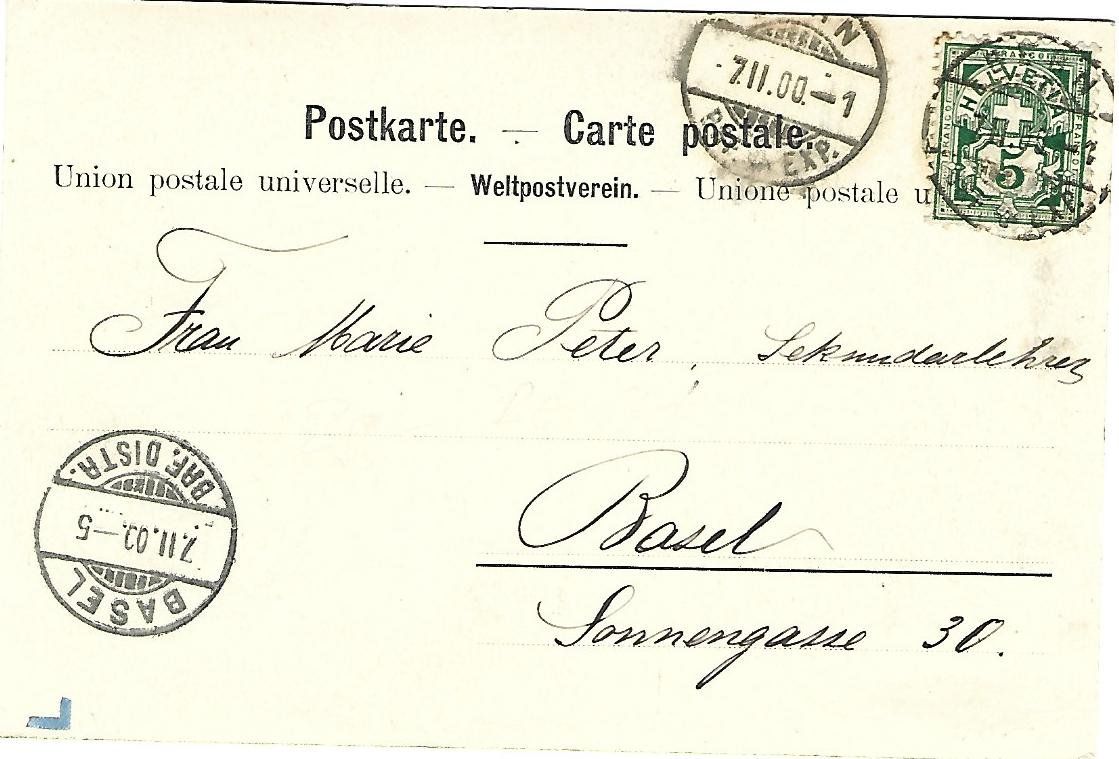 Postkarte. — Carte postale.
Union postale universelle. — Weltpostverein. — Unione postale u
7.II.00.–1
EXP.
FRANCO
HELVETIA
5
Frau Marie Peter, Sekundarlehrer
Basel
Sonnengasse 30.
BASEL
7.II.00.–5
BRF. DISTR.